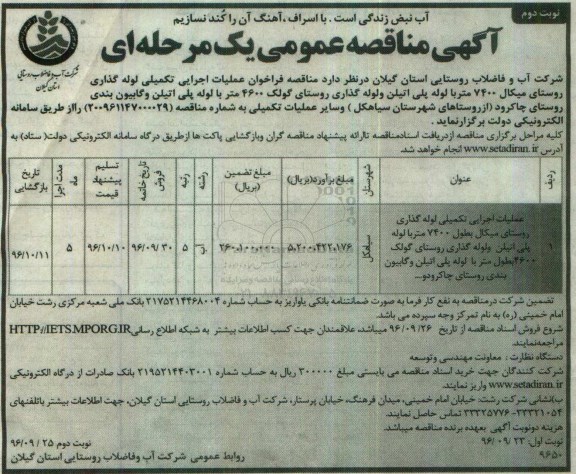 نوبت دوم
آب نبض زندگی است . با اسراف ، آهنگ آن را کُند نسازیم
آگهی مناقصه عمومی یک مرحله‌ای
شرکت آب و فاضلاب روستایی
استان گیلان
شرکت آب و فاضلاب روستایی استان گیلان درنظر دارد مناقصه فراخوان عملیات اجرایی تکمیلی لوله گذاری
روستای میکال ۷۴۰۰ متربا لوله پلی اتیلن ولوله گذاری روستای گولک ۴۶۰۰ متر با لوله پلی اتیلن وگابیون بندی
روستای چاکرود (ازروستاهای شهرستان سیاهکل ) وسایر عملیات تکمیلی به شماره مناقصه (۲۰۰۹۶۱۱۴۷۰۰۰۰۲۹) رااز طریق سامانه
الکترونیکی دولت برگزارنماید .
کلیه مراحل برگزاری مناقصه ازدریافت اسنادمناقصه تاارائه پیشنهاد مناقصه گران وبازگشایی پاکت ها ازطریق درگاه سامانه الکترونیکی دولت( ستاد) به
آدرس www.setadiran.ir انجام خواهد شد.
ردیف عنوان شهرستان مبلغ برآورد(بریال) مبلغ تضمین (بریال) رشته رتبه تاریخ خاتمه فروش تسلیم پیشنهاد قیمت مدت اجرا ماه تاریخ بازگشایی
۱ عملیات اجرایی تکمیلی لوله گذاری
روستای میکال بطول ۷۴۰۰ متربا لوله
پلی اتیلن ولوله گذاری روستای گولک
۴۶۰۰بطول متر با لوله پلی اتیلن وگابیون
بندی روستای چاکرودو...
سیاهکل ۵,۲۰۰,۴۲۲,۱۷۶ ۲۶۰,۱۰۰,۰۰۰ آب ۵ ۹۶/۰۹/۳۰ ۹۶/۱۰/۱۰ ۵ ۹۶/۱۰/۱۱
تضمین شرکت درمناقصه به نفع کار فرما به صورت ضمانتنامه بانکی یاواریز به حساب شماره ۲۱۷۵۲۱۴۴۶۸۰۰۴ بانک ملی شعبه مرکزی رشت خیابان
امام خمینی (ره) به نام تمرکز وجه سپرده می باشد.
شروع فروش اسناد مناقصه از تاریخ ۹۶/۰۹/۲۶ میباشد. علاقمندان جهت کسب اطلاعات بیشتر به شبکه اطلاع رسانی HTTP://IETS.MPORG.IR
مراجعه‌نمایند.
دستگاه نظارت : معاونت مهندسی وتوسعه
شرکت کنندگان جهت خرید اسناد مناقصه می بایستی مبلغ ۳۰۰۰۰۰ ریال به حساب شماره ۲۱۹۵۲۱۴۴۰۳۰۰۱ بانک صادرات از درگاه الکترونیکی
www.setadiran.ir واریز نمایند.
ب)نشانی شرکت: رشت: خیابان امام خمینی، میدان فرهنگ، خیابان پرستار، شرکت آب و فاضلاب روستایی استان گیلان، جهت اطلاعات بیشتر باتلفنهای
۳۳۳۲۱۰۵۴- ۳۳۳۲۵۷۷۶ تماس حاصل نمایند.
هزینه دونوبت آگهی بعهده برنده مناقصه میباشد.
نوبت اول: ۲۳ /۰۹ /۹۶
نوبت دوم ۲۵ / ۰۹ /۹۶
۹۶۵۰
روابط عمومی شرکت آب وفاضلاب روستایی استان گیلان